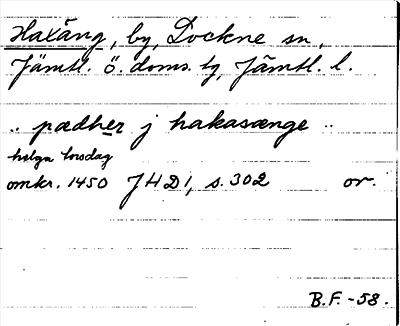 Haxäng, by, Lockne sn,
Jämtl. ö. doms. tg, Jämtl. l.
.. pædher j hakasænge ..
helga torsdag
omkr. 1450 JHD1, s. 302 or.
B.F. -58.